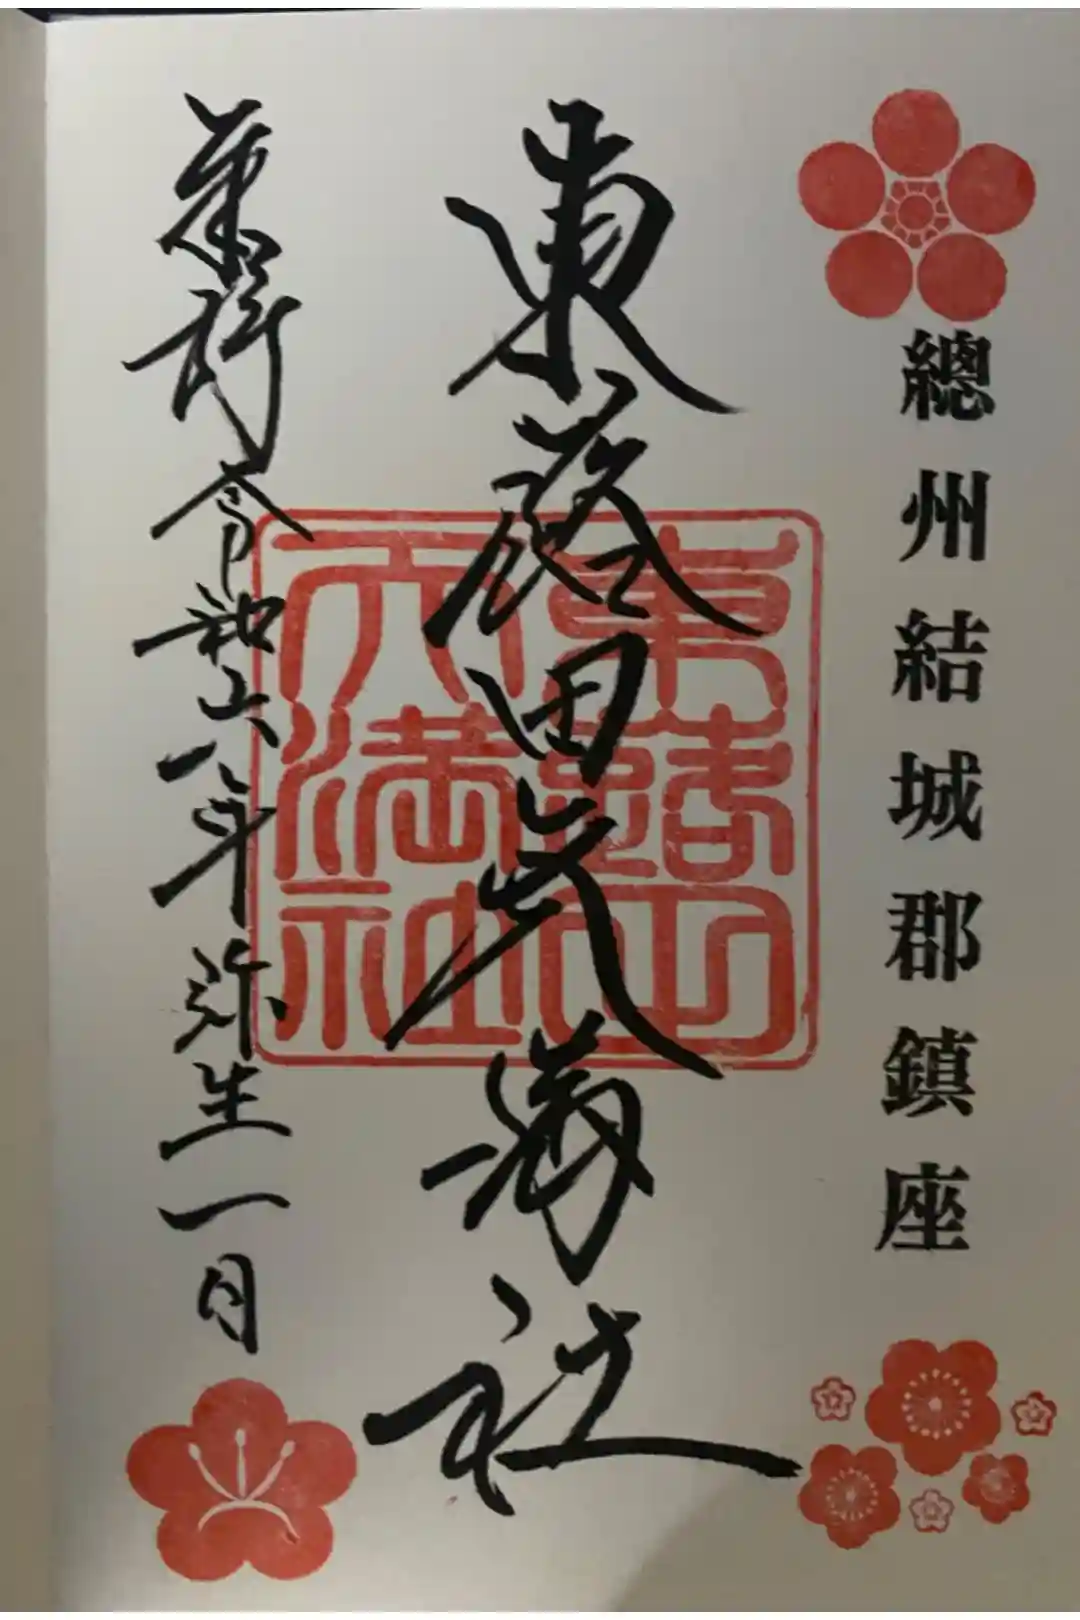 總州結城郡鎮座
東蕗田天満社
奉拝令和六年弥生一日
東蕗田
天満社